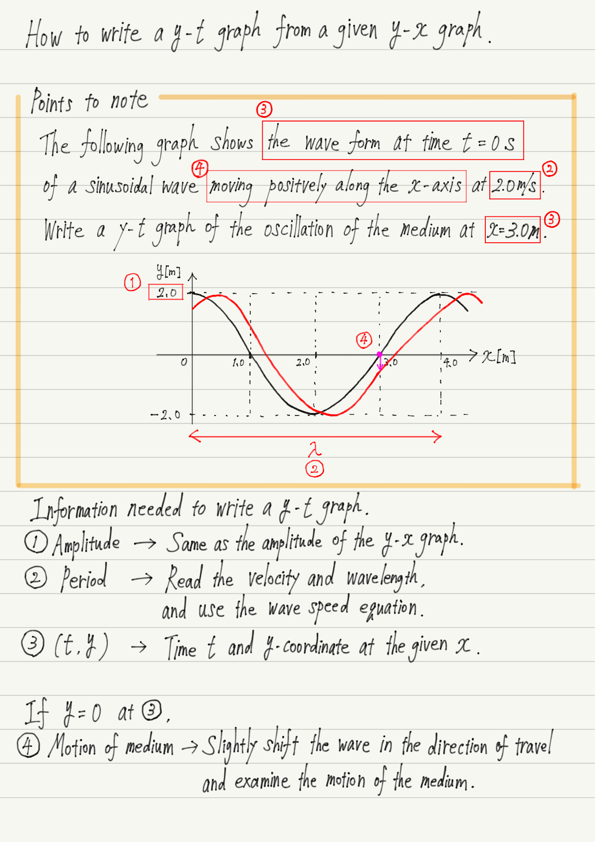 How to write a y-t graph from a given y-x graph.
Points to note
③
The following graph shows the wave form at time t = 0 s
of a sinusoidal wave ④ moving positvely along the x-axis at 2.0m/s. ②
Write a y-t graph of the oscillation of the medium at x=3.0m. ③
y[m]
① 2.0
④
0 1.0 2.0 3.0 4.0 x[m]
-2.0
λ
②
Information needed to write a y-t graph.
① Amplitude → Same as the amplitude of the y-x graph.
② Period → Read the velocity and wavelength,
and use the wave speed equation.
③ (t,y) → Time t and y-coordinate at the given x.
If y=0 at ③,
④ Motion of medium → Slightly shift the wave in the direction of travel
and examine the motion of the medium.